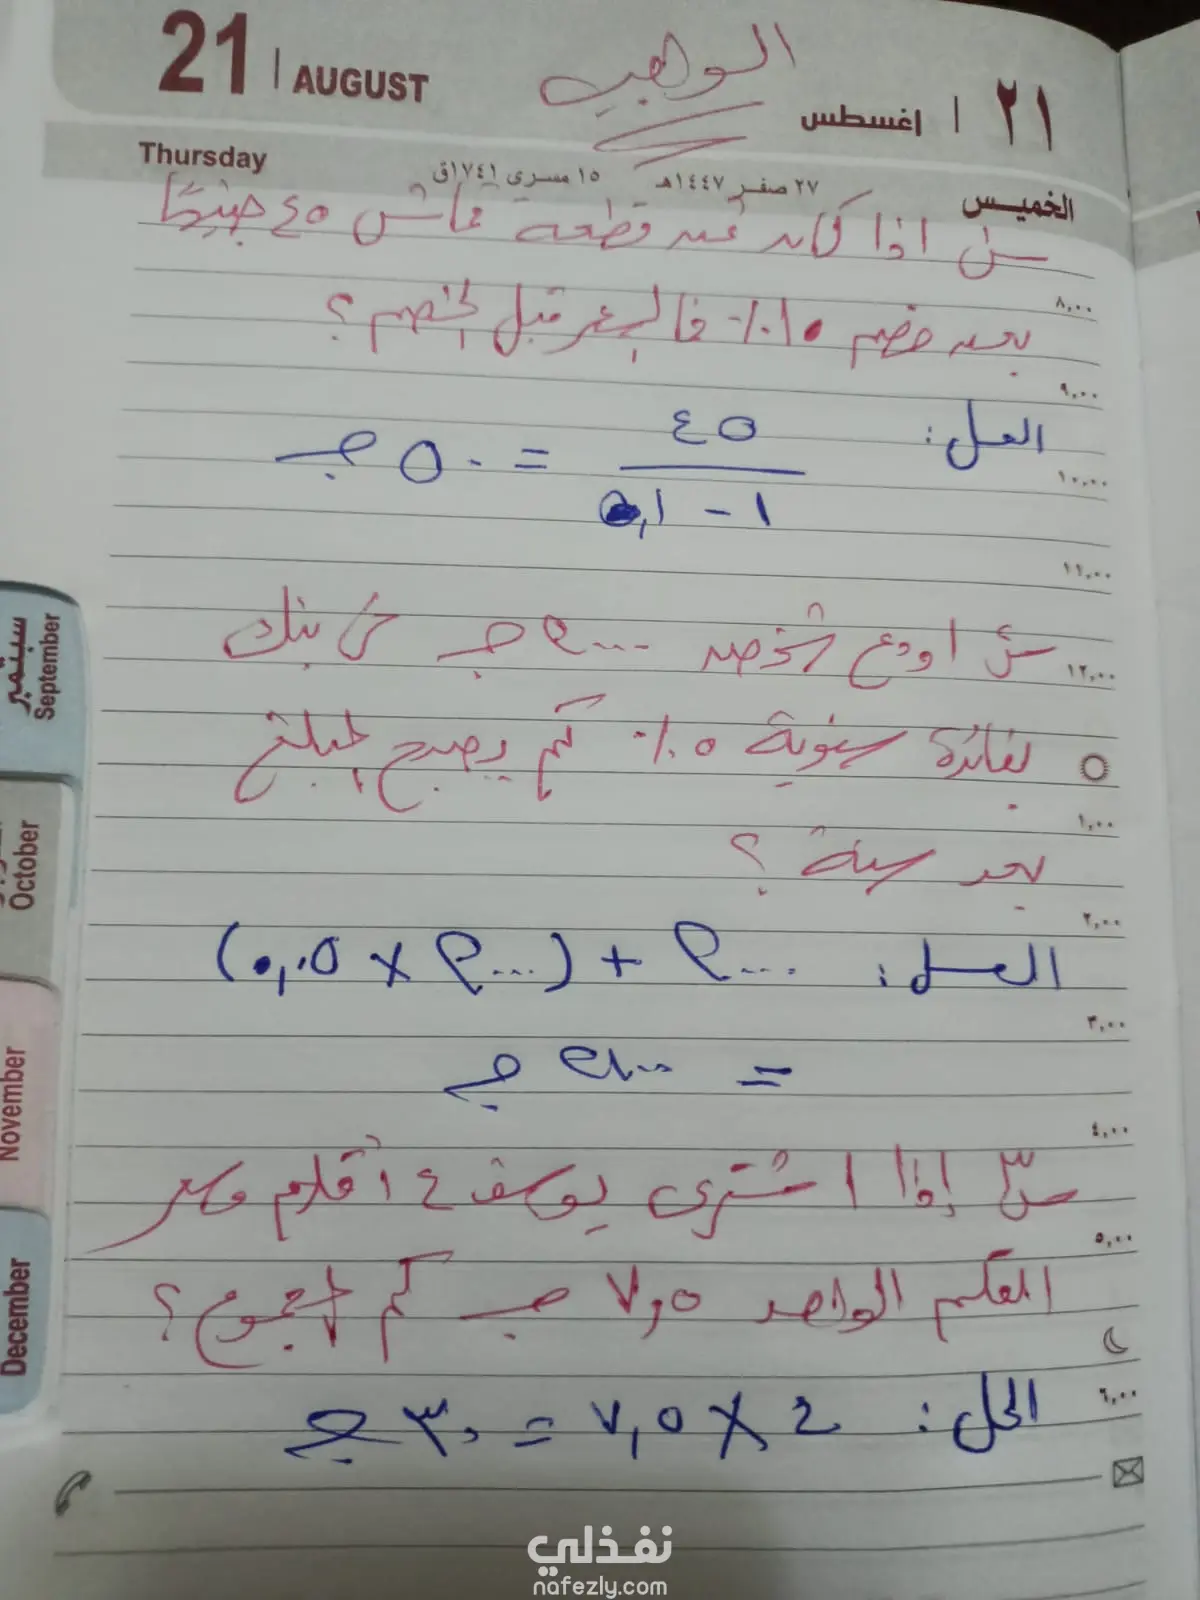 21 | AUGUST
الواجب
٢١ | اغسطس
Thursday
٢٧ صفر ١٤٤٧هـ
١٥ مسرى ١٧٤١ق
الخميس
س١ اذا كان ثمن قطعة قماش ٤٥ جنيهًا
٨,٠٠
بعد خصم ١٠٪ فالسعر قبل الخصم ؟
٩,٠٠
الحل : ٤٥ / ١ - ٠,١ = ٥٠ جـ
١٠,٠٠
١١,٠٠
س٢ اودع شخص ٢٠٠٠ جـ في بنك
١٢,٠٠
بفائدة سنوية ٥٪ كم يصبح المبلغ
١,٠٠
بعد سنة ؟
٢,٠٠
الحل : ٢٠٠٠ + (٢٠٠٠ × ٠,٠٥)
٣,٠٠
= ٢١٠٠ جـ
٤,٠٠
س٣ إذا اشترى يوسف ٤ أقلام وسعر
٥,٠٠
القلم الواحد ٧,٥ جـ كم المجموع ؟
٦,٠٠
الحل : ٤ × ٧,٥ = ٣٠ جـ
سبتمبر
September
October
November
December
نفذلي
nafezly.com